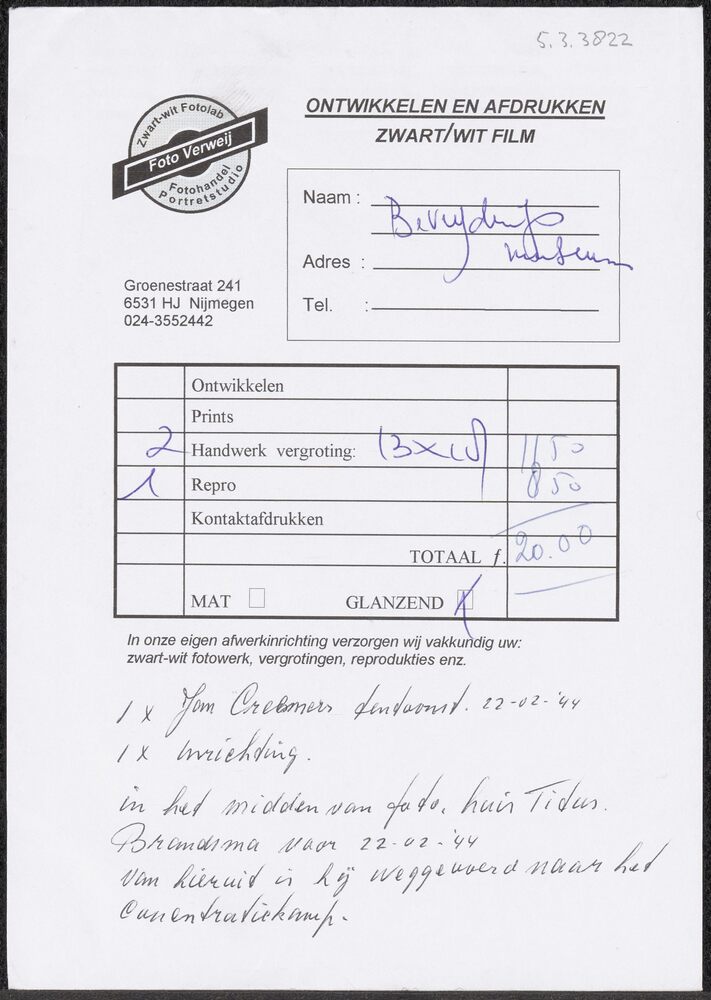 5.3.3822
Zwart-wit Fotolab
Foto Verweij
Fotohandel
Portretstudio
ONTWIKKELEN EN AFDRUKKEN
ZWART/WIT FILM
Naam : Bevrijdings
museum
Adres :
Tel. :
Groenestraat 241
6531 HJ Nijmegen
024-3552442
Ontwikkelen
Prints
2 Handwerk vergroting: 13x18 11 50
1 Repro 8 50
Kontaktafdrukken
TOTAAL f. 20.00
MAT GLANZEND
In onze eigen afwerkinrichting verzorgen wij vakkundig uw:
zwart-wit fotowerk, vergrotingen, reprodukties enz.
1 x Jan Creemers tentoonst. 22-02-'44
1 x inrichting.
in het midden van foto. huis Titus.
Brandsma voor 22-02-'44
van hieruit is hij weggevoerd naar het
Concentratiekamp.